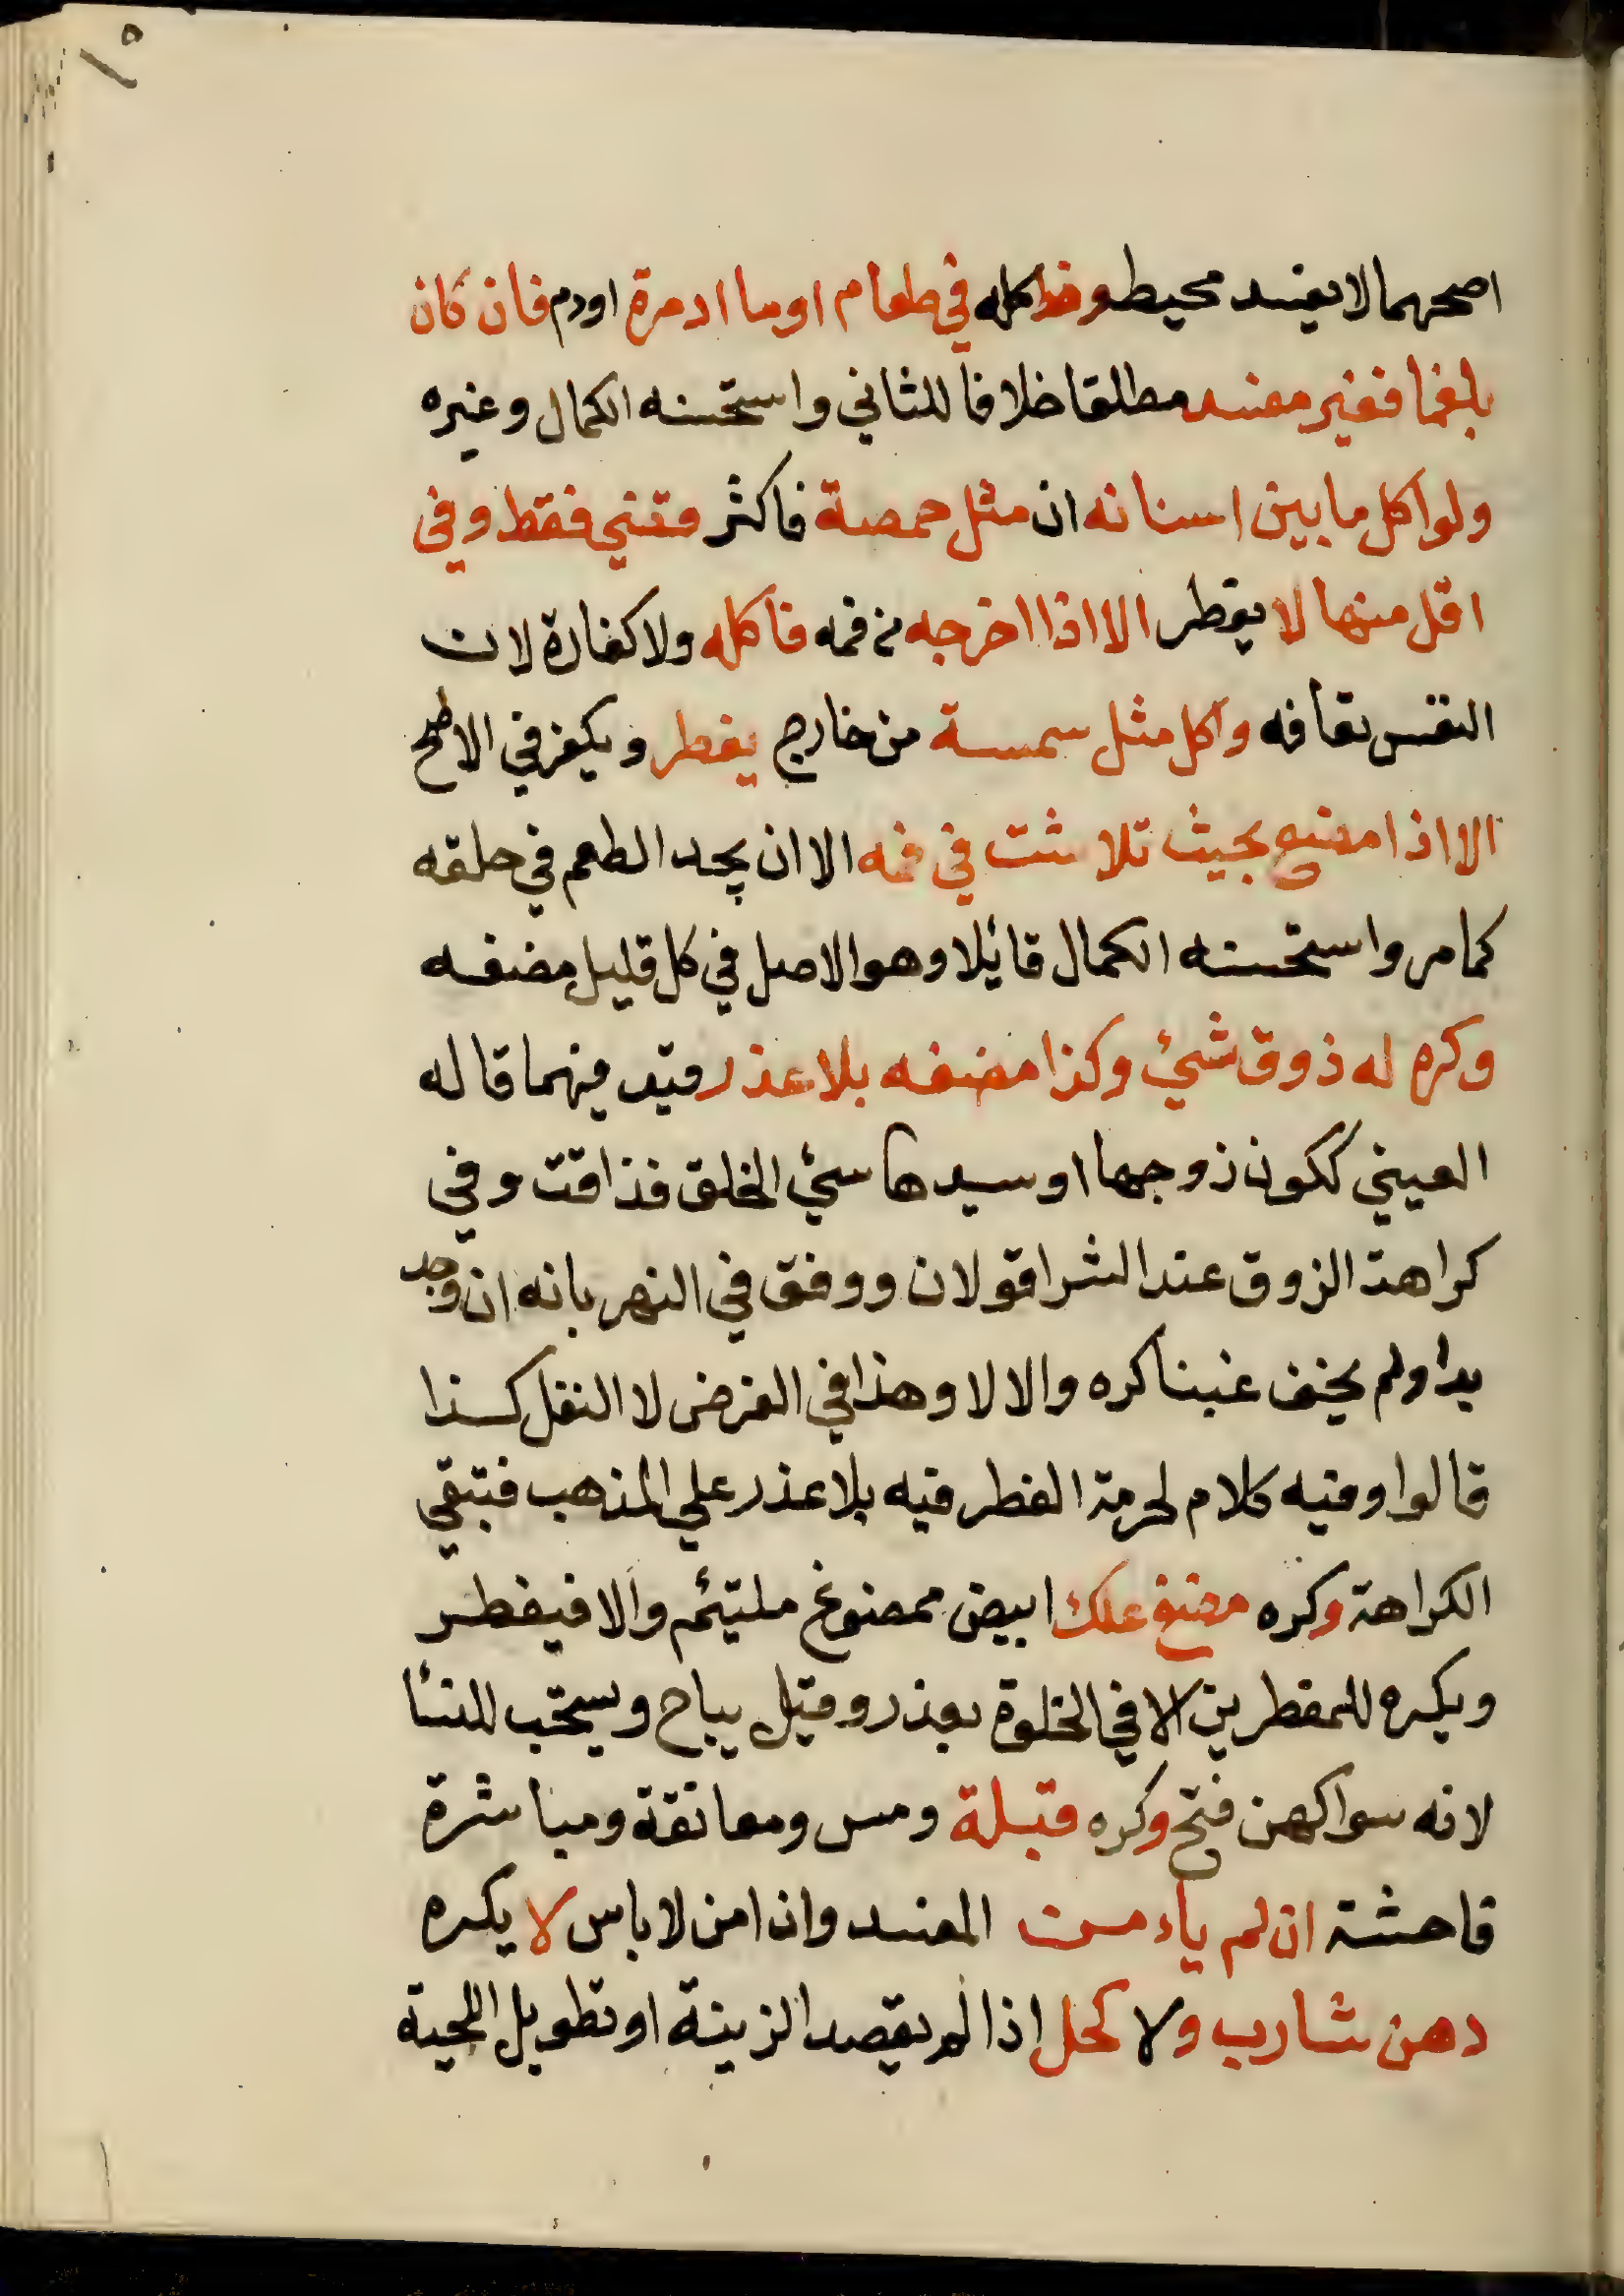 ١٥
اصحهما لا يفسد محيط وهذا كله في طعام او ما او مرة او دم فان كان
بلغما فغير مفسد مطلقا خلافا للثاني واستحسنه الكمال وغيره
ولو اكل ما بين اسنانه ان مثل حمصة فاكثر قضي فقط وفي
اقل منها لا يفطر الا اذا اخرجه من فمه فاكله ولا كفارة لان
النفس تعافه واكل مثل سمسة من خارج يفطر ويكفر في الاصح
الا اذا مضغ بحيث تلاشت في فمه الا ان يجد الطعم في حلقه
كما مر واستحسنه الكمال قائلا وهو الاصل في كل قليل مضغه
وكره له ذوق شئ وكذا مضغه بلا عذر قيد فيهما قاله
العيني ككون زوجها او سيدها سئ الخلق فذاقت وفي
كراهة الزوق عند الشرا قولان ووفق في النهر بانه ان وجد
بدا ولم يخف غبنا كره والا لا وهذا في الفرض لا النفل كذا
قالوا وفيه كلام لحرمة الفطر فيه بلا عذر علي المذهب فتبقي
الكراهة وكره مضغ علك ابيض ممضوغ ملتئم والا فيفطر
ويكره للمفطرين الا في الخلوة بعذر وقيل يباح ويستحب للنسا
لانه سواكهن فتح وكره قبلة ومس ومعانقة ومباشرة
فاحشة ان لم ياءمن المفسد وان امن لا باس لا يكره
دهن شارب ولا كحل اذا لم يقصد الزينة او تطويل اللحية